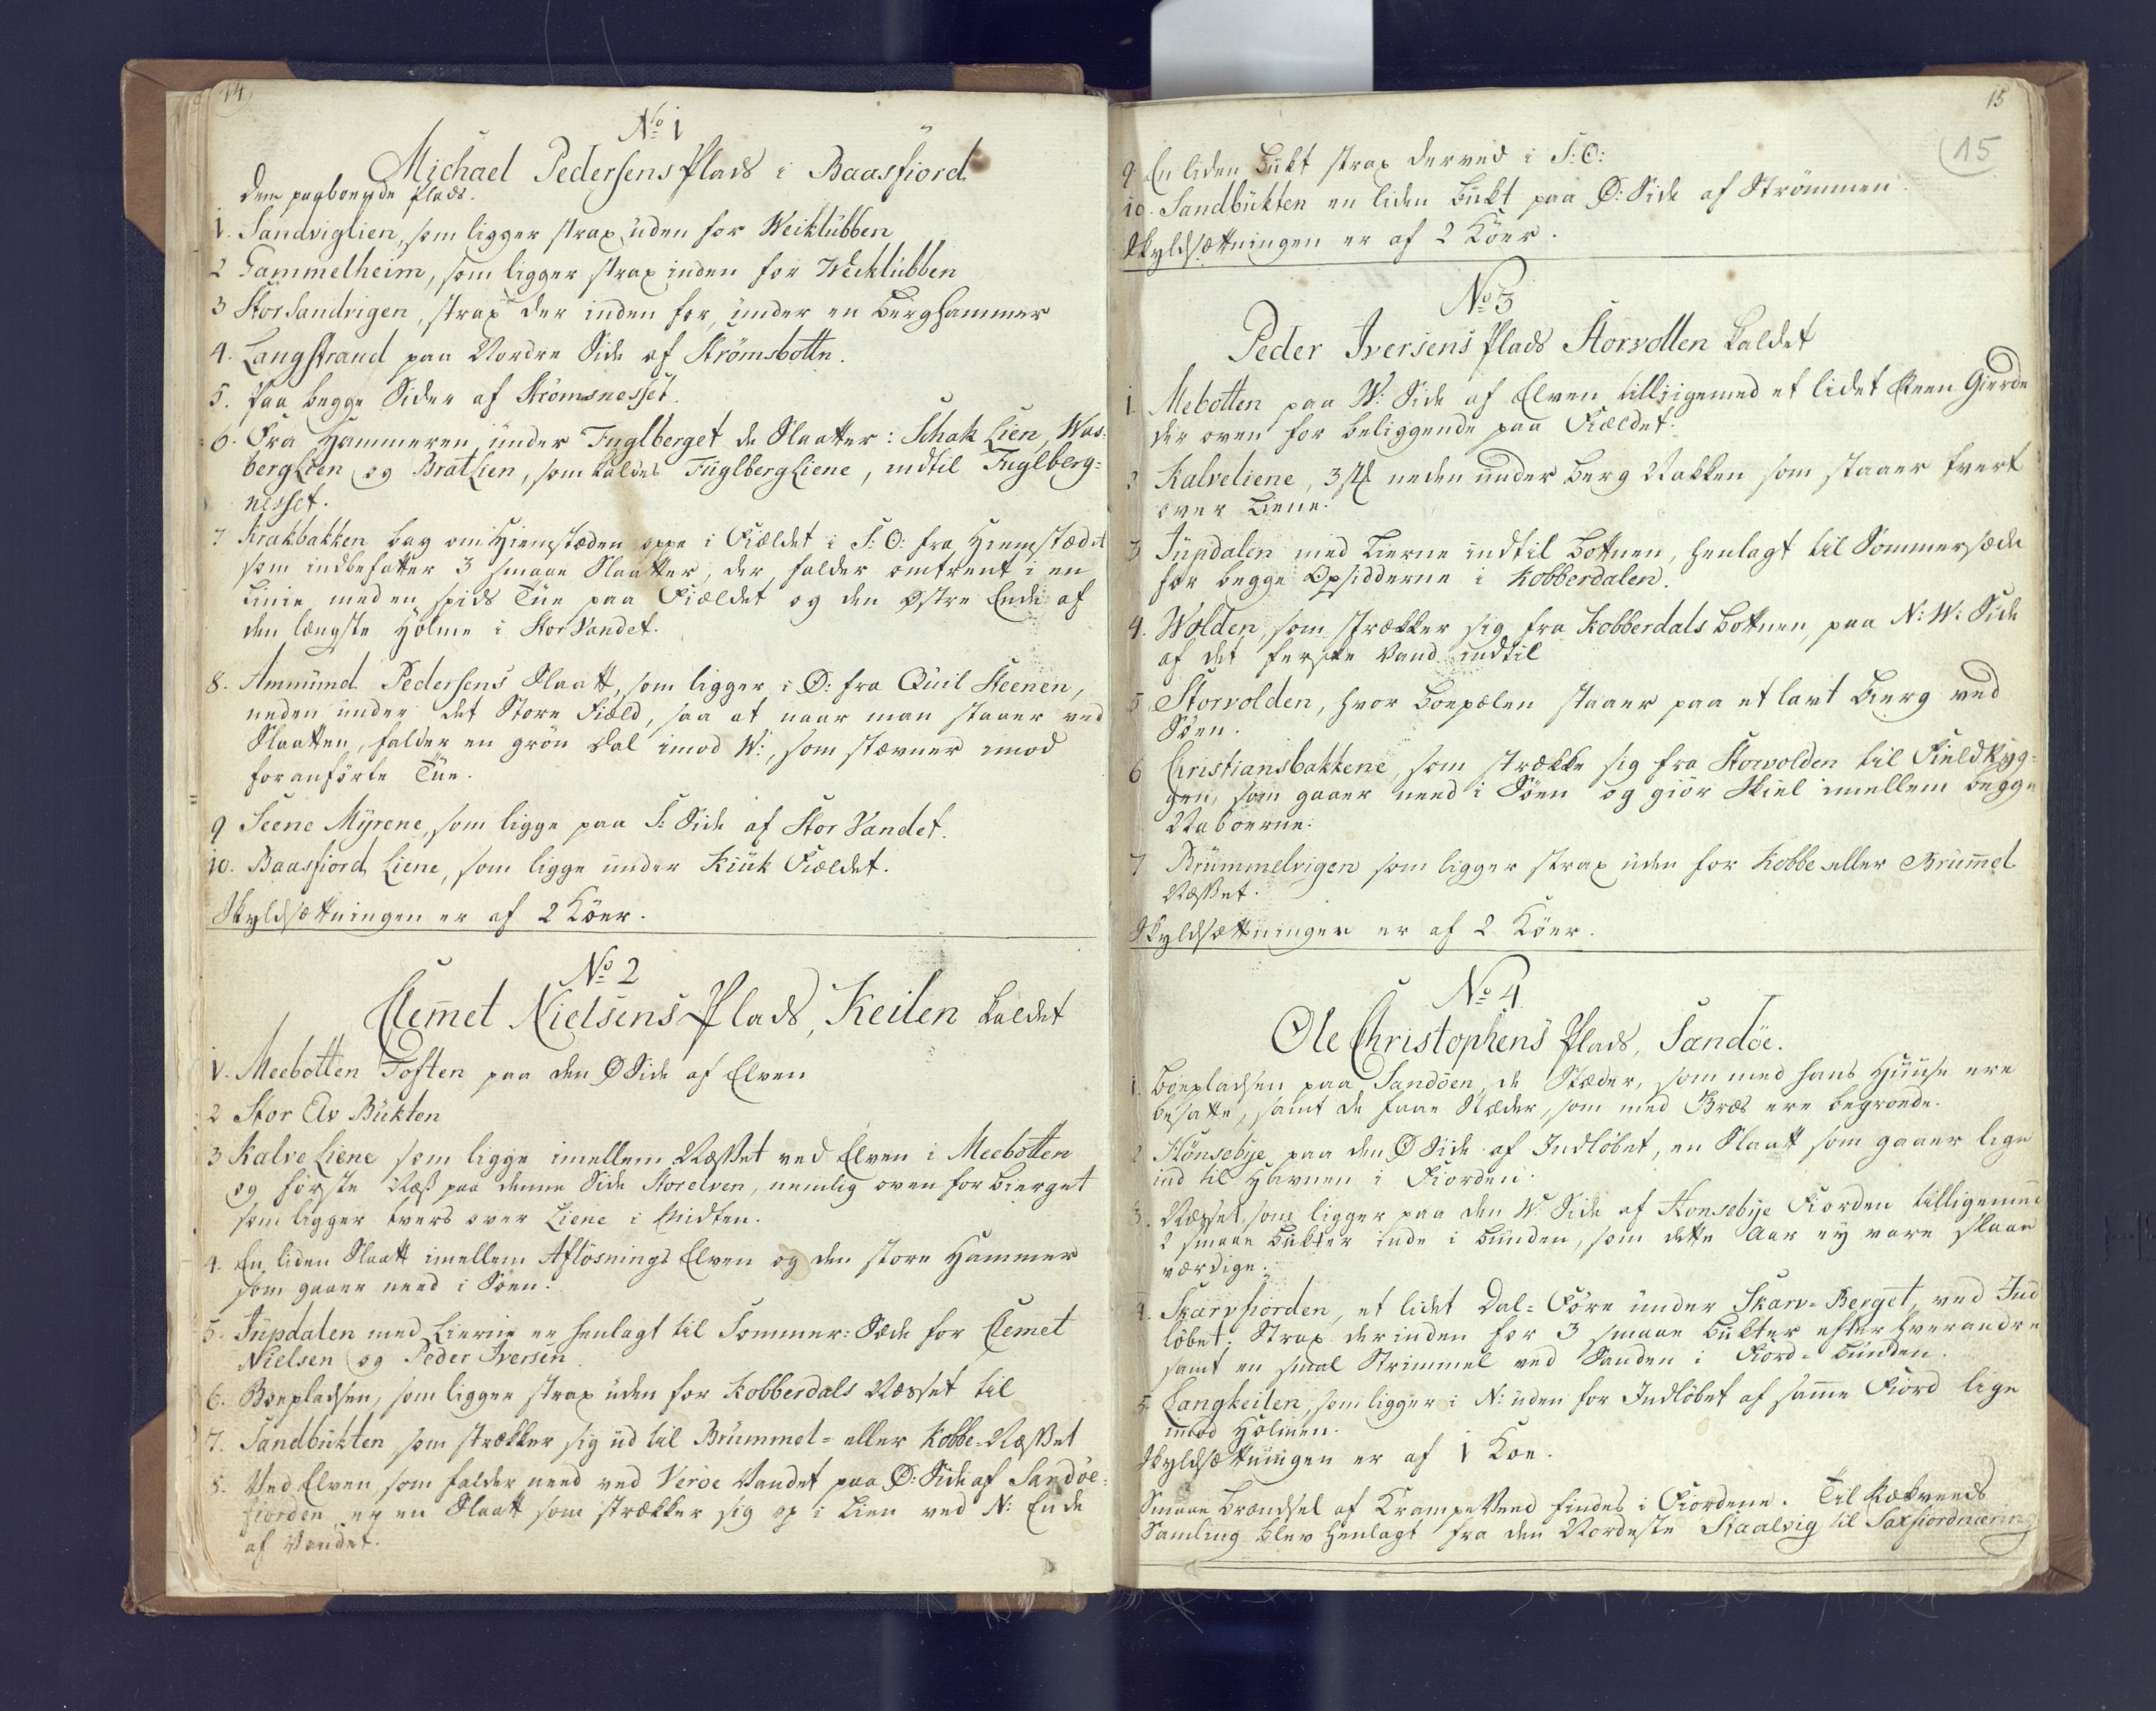 14
No 1
Michael Pedersens Plads i Baasfiord
den paaboende Plads.
1. Sandviglien, som ligger strax uden for Weiklubben
2 Gammelheim, som ligger strax inden for Weiklubben
3 Stor Sandvigen, strax der inden for, under en Berghammer
4. Langstrand paa Nordre Side af Strömsbottn.
5. Paa begge Sider af Strömsnesset.
6. Fra Hammeren under Fuglberget de Slaatter: Schak Lien, Was-
bergLien og BratLien, som kaldes FuglbergLiene, indtil Fuglberg=
nesset.
7 Krakbakken bag om Hiemstæden oppe i Fiældet i S: O: fra Hiemstædet
som indbefatter 3 smaae Slaatter, der falder omtrent i en
Linie med en spids Tue paa Fiældet og den Østre Ende af
den længste Holme i StorVandet.
8. Ammund Pedersens Slaatt, som ligger i O: fra Quil Steenen,
neden under det Store Field, saa at naar man staaer ved
Slaatten, falder en grön Dal imod W:, som stævner imod
foranförte Tue.
9 Seene Myrene, som ligge paa S: Side af Stor Vandet.
10. Baasfiord Liene, som ligge under Kiük Fieldet.
Skyldsættningen er af 2 Köer.
No 2
Clem̄et Nielsens Plads, Keilen kaldet
1. Meebotten Toften paa den O Side af Elven
2 Stor Elv Bukten
3 Kalve Liene som ligge imellem Næsset ved Elven i Meebotten
og förste Næs paa denne Side Storelven, nemlig oven for Bierget
som ligger tvers over Liene i Midten.
4. En liden Slaatt imellem Aflösnings Elven og den store Hammer
som gaaer need i Söen.
5. Jupdalen med Lierne er henlagt til Sommer-Sæde for Clem̄et
Nielsen og Peder Iversen
6. Boepladsen, som ligger strax uden for Kobberdals Næsset til
7. Sandbukten, som strækker sig ud til Brummel= eller Kobbe-Næsset
8. Ved Elven, som falder need ved Veröe Vandet paa O: Side af Sandöe-
fiorden, er en Slaatt som strækker sig op i Lien ved N: Ende
af Vandet.
15
15
9 En liden Bukt strax derved i S: O:
10. Sandbukten en liden Bukt paa O: Side af Strömmen.
Skyldsættningen er af 2 Köer.
No 3
Peder Iversens Plads Storvollen kaldet
1. Mebotten paa W: Side af Elven tilligemed et lidet Gierde
der oven for beliggende paa Fieldet.
2 Kalveliene, neden under Berg Nakken som staaer tvert
over Liene.
3 Jupdalen med Lierne indtil Bottnen, henlagt til Sommersæde
for begge Opsidderne i Kobberdalen.
4. Wolden, som strækker sig fra Kobberdals Bottnen paa N: W: Side
af det ferske Vand indtil
5 Storvolden, hvor Boepælen staaer paa et lavt Bierg ved
Söen.
6 Christiansbakkene, som strække sig fra Storvolden til Fieldryg-
gen, som gaaer need i Söen og giör Skiel imellem begge
Naboerne.
7 Brummelvigen som ligger strax uden for Kobbe eller Brum̄el
Næsset.
Skyldsættningen er af 2 Köer.
No 4
Ole Christophens Plads, Sandöe.
1. Boepladsen paa Sandöen, de Stæder, som med hans Huuse ere
besatte, samt de faae Stæder, som med Græs ere begroede.
2 Hönsebye paa den O Side af Indlöbet, en Slaatt som gaaer lige
ind til Havnen i Fiorden.
3. Næsset, som ligger paa den W: Side af Hönsebye Fiorden tilligemed
2 smaae Bukter inde i Bunden, som dette Aar ey vare slaae
værdige.
4. Skarvfiorden, et lidet Dal-Före under Skarv-Berget, ved Ind
löbet; Strax derinden for 3 smaae Bukter efter hverandre
samt en smal Strimmel ved Sanden i Fiord-Bunden.
5. Langkeilen, som ligger i N: uden for Indlöbet af sam̄e Fiord lige
imod Holmen.
Skyldsættningen er af 1 Koe.
Smaae Brændsel af Krampe Veed findes i Fiordene. Til Rækveeds
Samling blev henlagt fra den Nordeste Staalvig til Saxfiordnæring